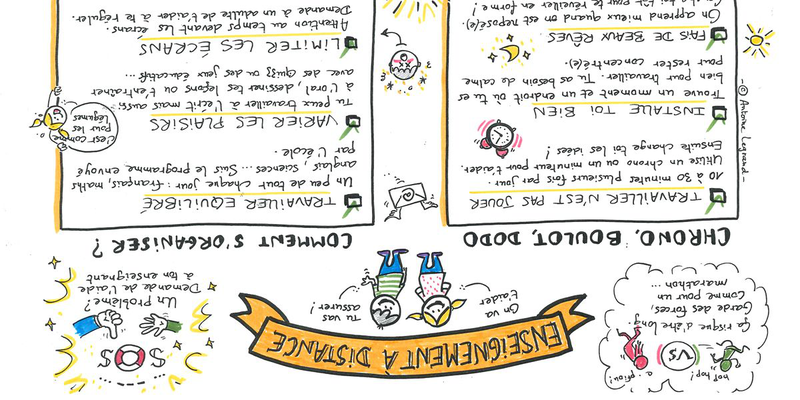 hop hop !
VS
a.. pfiou !
Ça risque d'être long
Garde des forces.
Comme pour un
marathon...
ENSEIGNEMENT À DISTANCE
On va
t'aider
Tu vas
assurer !
SOS
Un problème ?
Demande de l'aide
à ton enseignant
CHRONO, BOULOT, DODO
TRAVAILLER N'EST PAS JOUER
10 à 30 minutes plusieurs fois par jour.
Utilise un chrono ou un minuteur pour t'aider.
Ensuite change toi les idées !
INSTALLE TOI BIEN
Trouve un moment et un endroit où tu es
bien pour travailler. Tu as besoin de calme
pour rester concentré(e).
FAIS DE BEAUX RÊVES
On apprend mieux quand on est reposé(e).
pour te réveiller en forme !
-© Antoine Legrand-
COMMENT S'ORGANISER ?
TRAVAILLER EQUILIBRÉ
Un peu de tout chaque jour : français, maths,
anglais, sciences... Suis le programme envoyé
par l'école.
VARIER LES PLAISIRS
Tu peux travailler à l'écrit mais aussi
à l'oral, dessiner tes leçons ou t'entraîner
avec des quizz ou des jeux éducatifs...
C'est comme
pour les
légumes
LIMITER LES ÉCRANS
Attention au temps devant les écrans.
Demande à un adulte de t'aider à te réguler.